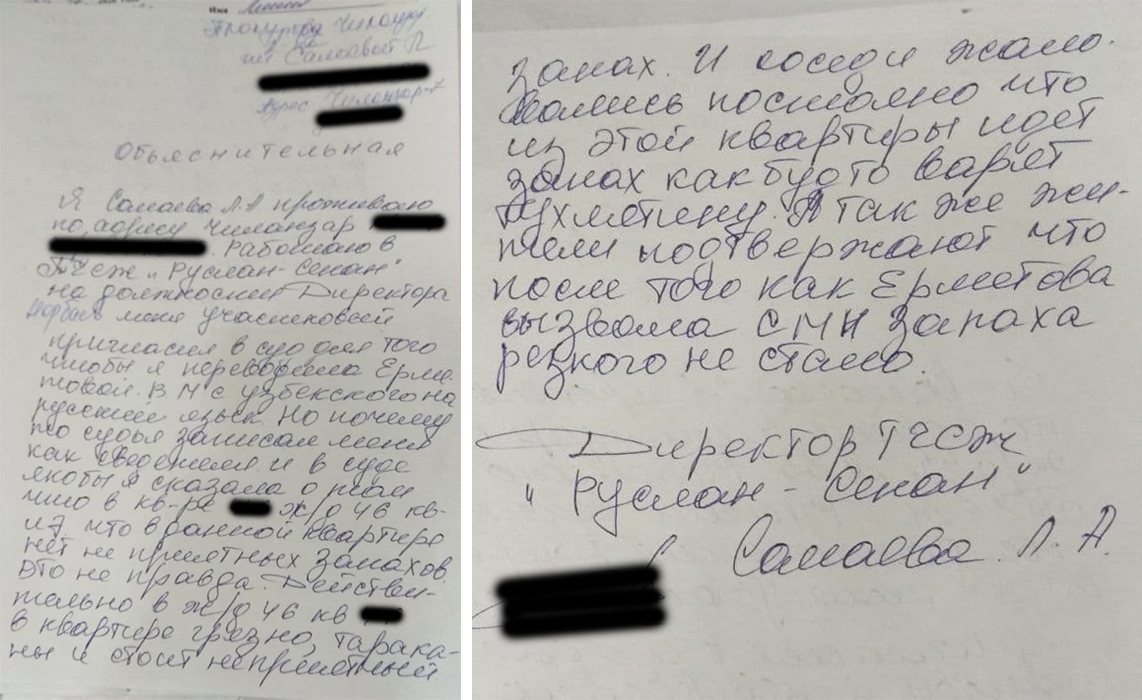 Имя
Прокурору Чиланзар
Самаевой Л
Адрес Чиланзар-7
Обьяснительная
Я Самаева Л.А проживаю
по адресу Чиланзар
Работаю в
ТЧСЖ „Руслан-Сенан"
на должности Директора
меня участковый
пригласил в суд для того
чтобы я переводила Ерме-
товой. В М с узбекского на
русский язык. Но почему
то судья записал меня
как сведетеля и в суде
якобы я сказала о том
что в кв-ре ж/д 46 кв-
л 7, что в данной квартире
нет не приятных запахов.
Это не правда. Действи-
тельно в ж/д 46 кв
в квартире грязно, тарака-
ны и стоит неприятный
запах. И соседи жало-
вались постояно что
из этой квартиры идет
запах как будто варят
тухлятину. А так же жи-
тели подтвержают что
после того как Ерметова
вызвала СМИ запаха
резкого не стало.
Директор ТЧСЖ
„Руслан-Сенан"
Самаева Л.А.